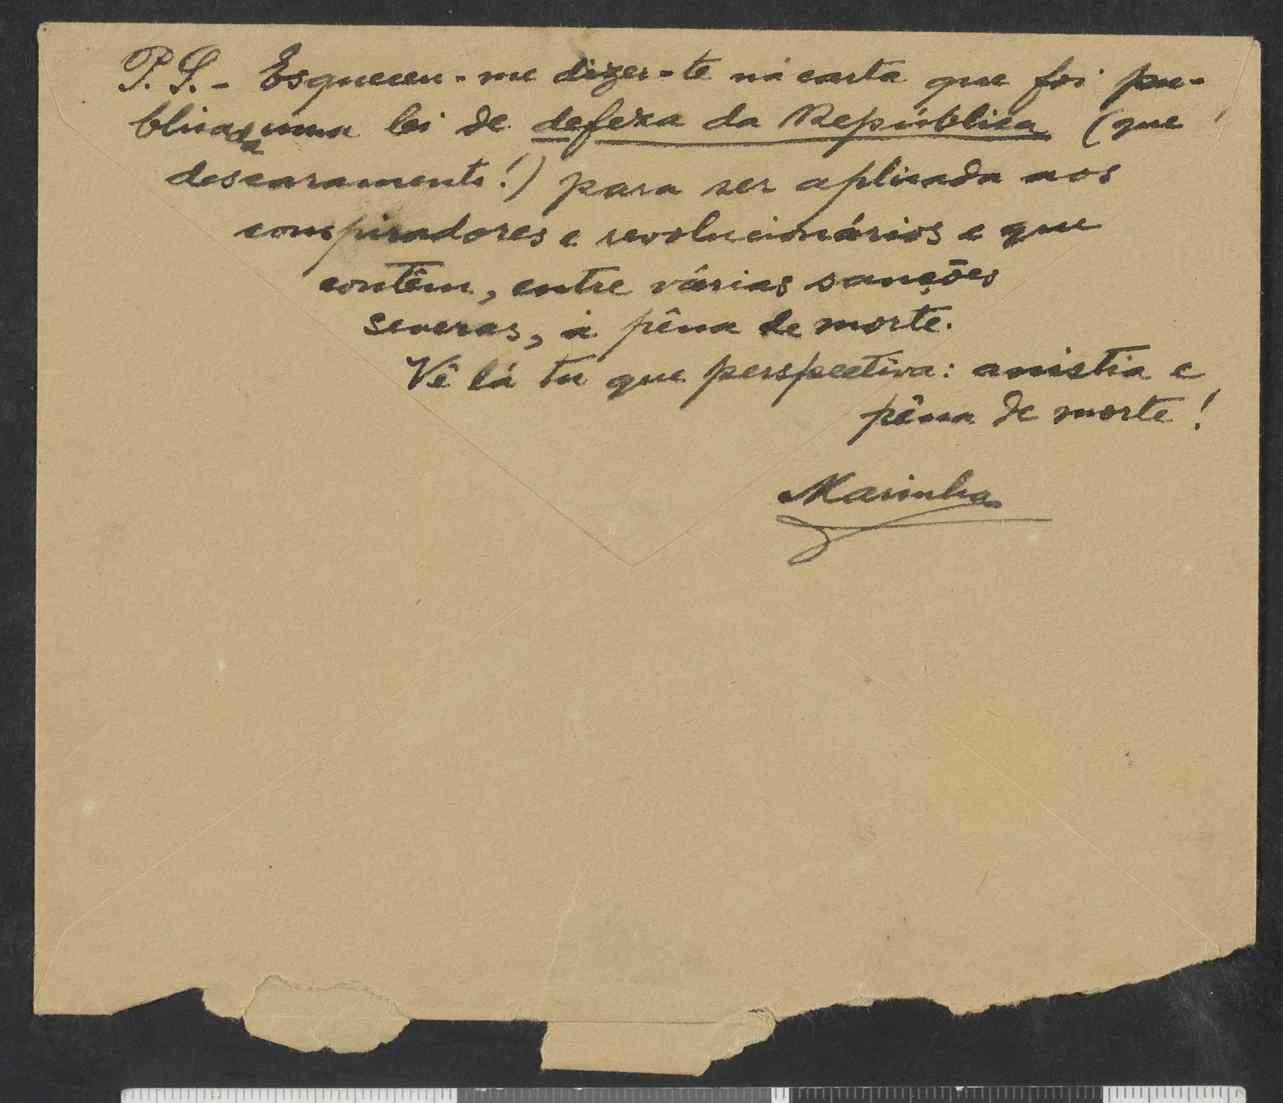 P. S. - Esqueceu-me dizer-te na carta que foi pu-
blicada uma lei de defeza da República (que
descaramento!) para ser aplicada aos
conspiradores e revolucionários e que
contêm, entre várias sanções
severas, a pêna de morte.
Vê lá tu que perspectiva: amistia e
pêna de morte!
Marinha